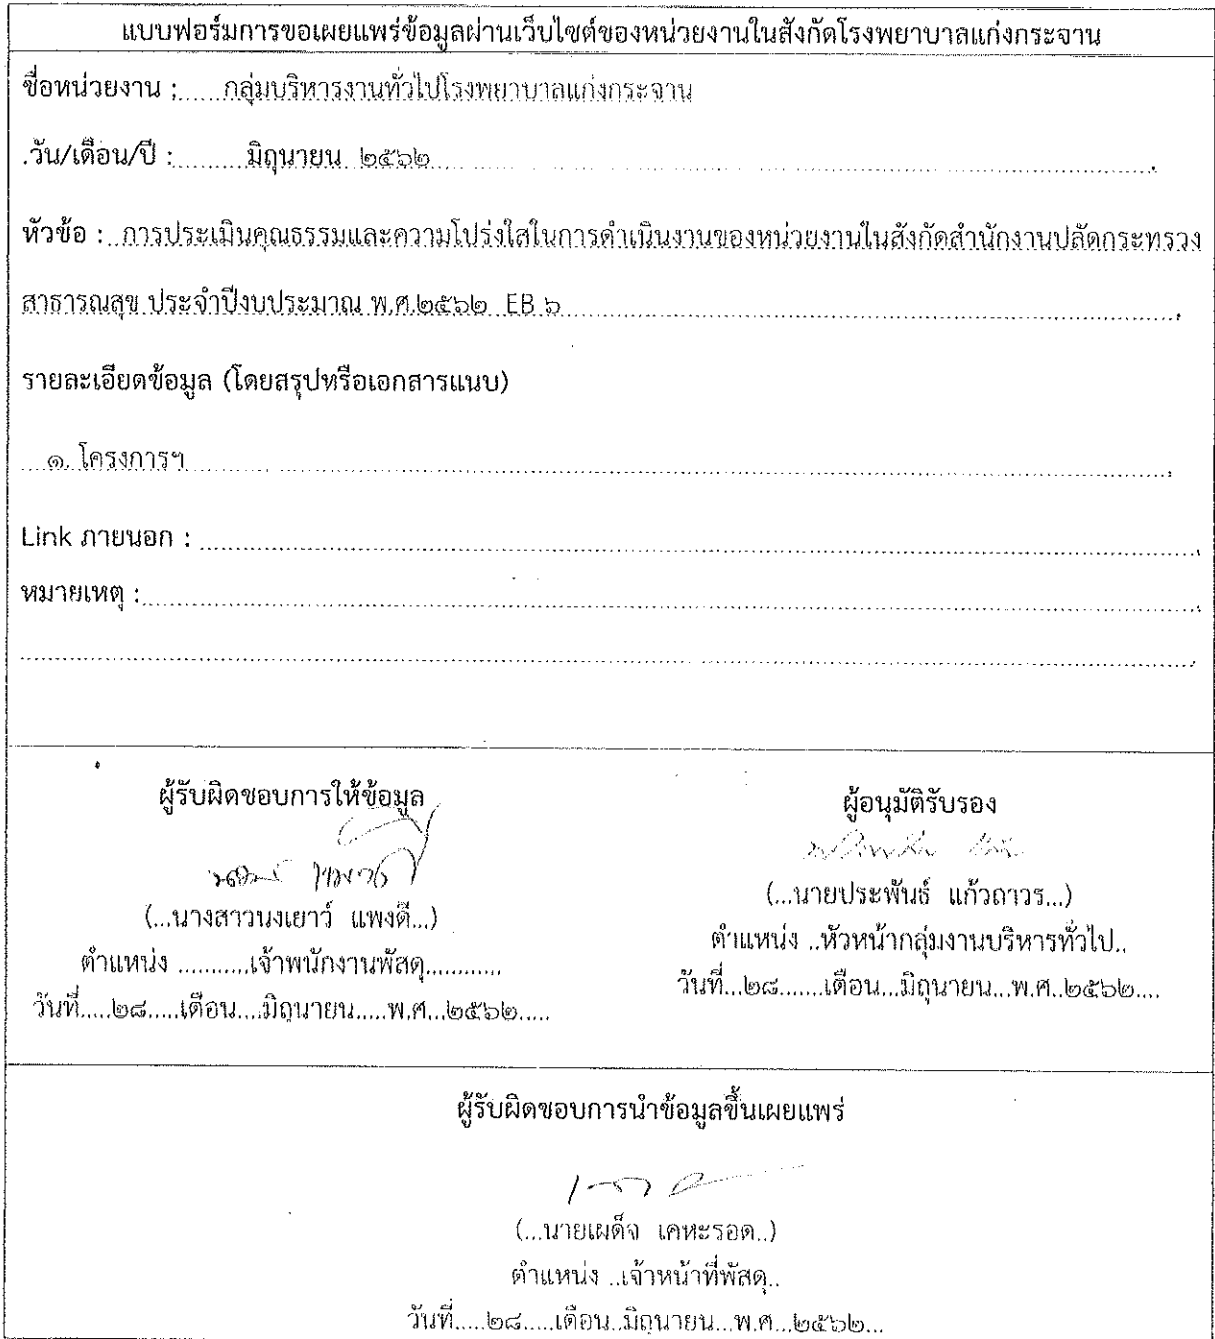 แบบฟอร์มการขอเผยแพร่ข้อมูลผ่านเว็บไซต์ของหน่วยงานในสังกัดโรงพยาบาลแก่งกระจาน
ชื่อหน่วยงาน :......กลุ่มบริหารงานทั่วไปโรงพยาบาลแก่งกระจาน
.วัน/เดือน/ปี :..........มิถุนายน ๒๕๖๒
หัวข้อ :..การประเมินคุณธรรมและความโปร่งใสในการดำเนินงานของหน่วยงานในสังกัดสำนักงานปลัดกระทรวง
สาธารณสุข ประจำปีงบประมาณ พ.ศ.๒๕๖๒ EB ๖
รายละเอียดข้อมูล (โดยสรุปหรือเอกสารแนบ)
๑. โครงการฯ
Link ภายนอก :
หมายเหตุ :
ผู้รับผิดชอบการให้ข้อมูล
(...นางสาวนงเยาว์ แพงดี...)
ตำแหน่ง ...........เจ้าพนักงานพัสดุ............
วันที่.....๒๘.....เดือน....มิถุนายน.....พ.ศ...๒๕๖๒.....
ผู้อนุมัติรับรอง
(...นายประพันธ์ แก้วถาวร...)
ตำแหน่ง ..หัวหน้ากลุ่มงานบริหารทั่วไป..
วันที่...๒๘.......เดือน...มิถุนายน...พ.ศ..๒๕๖๒....
ผู้รับผิดชอบการนำข้อมูลขึ้นเผยแพร่
(...นายเผด็จ เคหะรอด..)
ตำแหน่ง ..เจ้าหน้าที่พัสดุ..
วันที่.....๒๘.....เดือน..มิถุนายน...พ.ศ...๒๕๖๒...